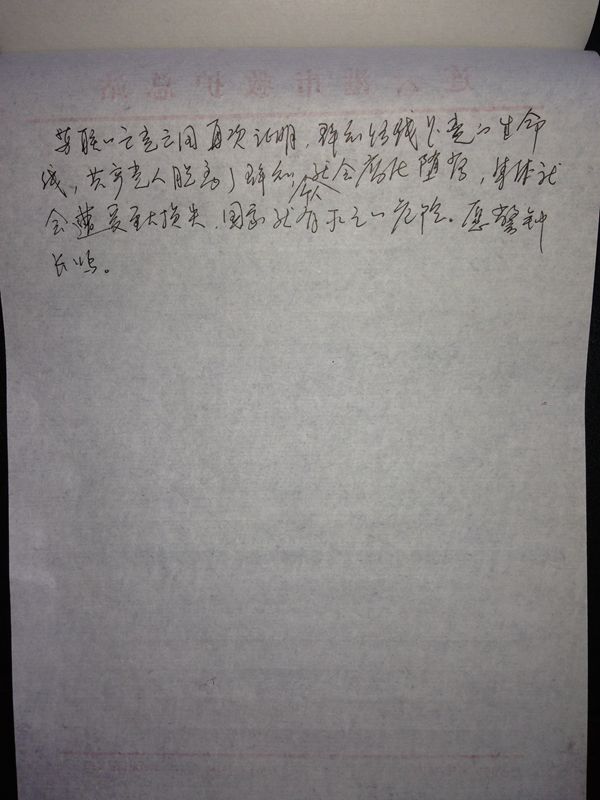 连云港市救护总站
苏联的亡党亡国再次证明，群众路线是党的生命
线，共产党人脱离了群众，个人就会腐化堕落，集体就
会遭受重大损失，国家就有灭亡的危险。愿警钟
长鸣。